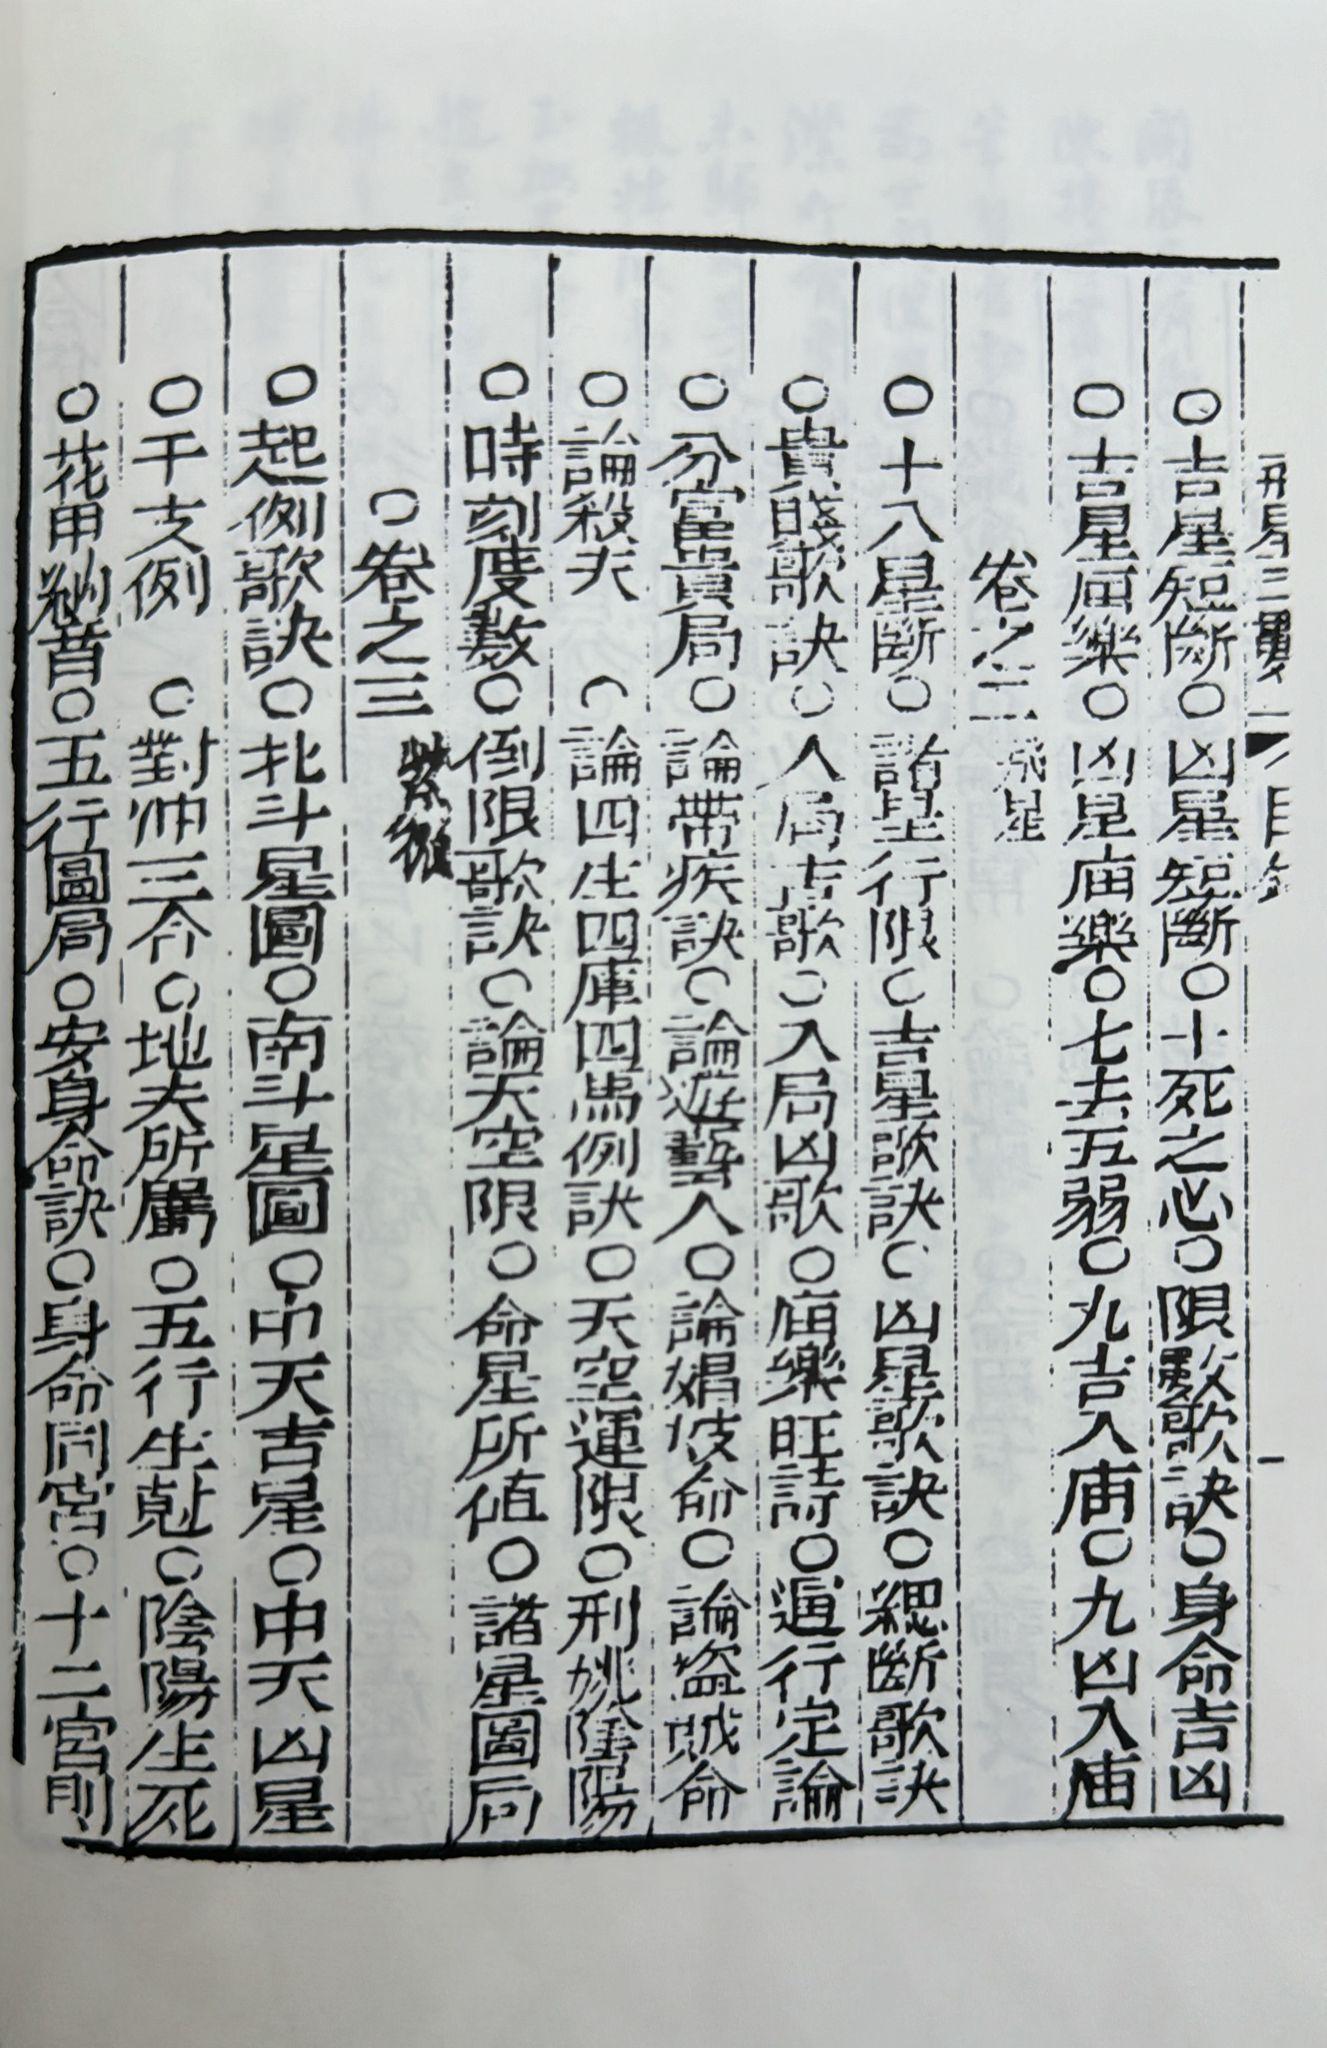 ○吉星短斷○凶星短斷○十死之忌○限數歌訣○身命吉凶
○吉星庙樂○凶星庙樂○七去五弱○九吉入庙○九凶入庙
卷之二 飛星
○十八星斷○諸星行限○吉星歌訣○凶星歌訣○總斷歌訣
○貴賤歌訣○入局吉歌○入局凶歌○庙樂旺詩○逼行定論
○分富貴局○論帶疾訣○論遊藝人○論娼妓命○論盜賊命
○論殺夭 ○論四生四庫四馬例訣○天空運限○刑姚陰陽
○時刻度數○倒限歌訣○論天空限○命星所值○諸星圖局
○卷之三 紫微
○起例歌訣○北斗星圖○南斗星圖○中天吉星○中天凶星
○干支例 ○對冲三合○地夫所屬○五行生尅○陰陽生死
○花甲納音○五行圖局○安身命訣○身命同宮○十二宮則